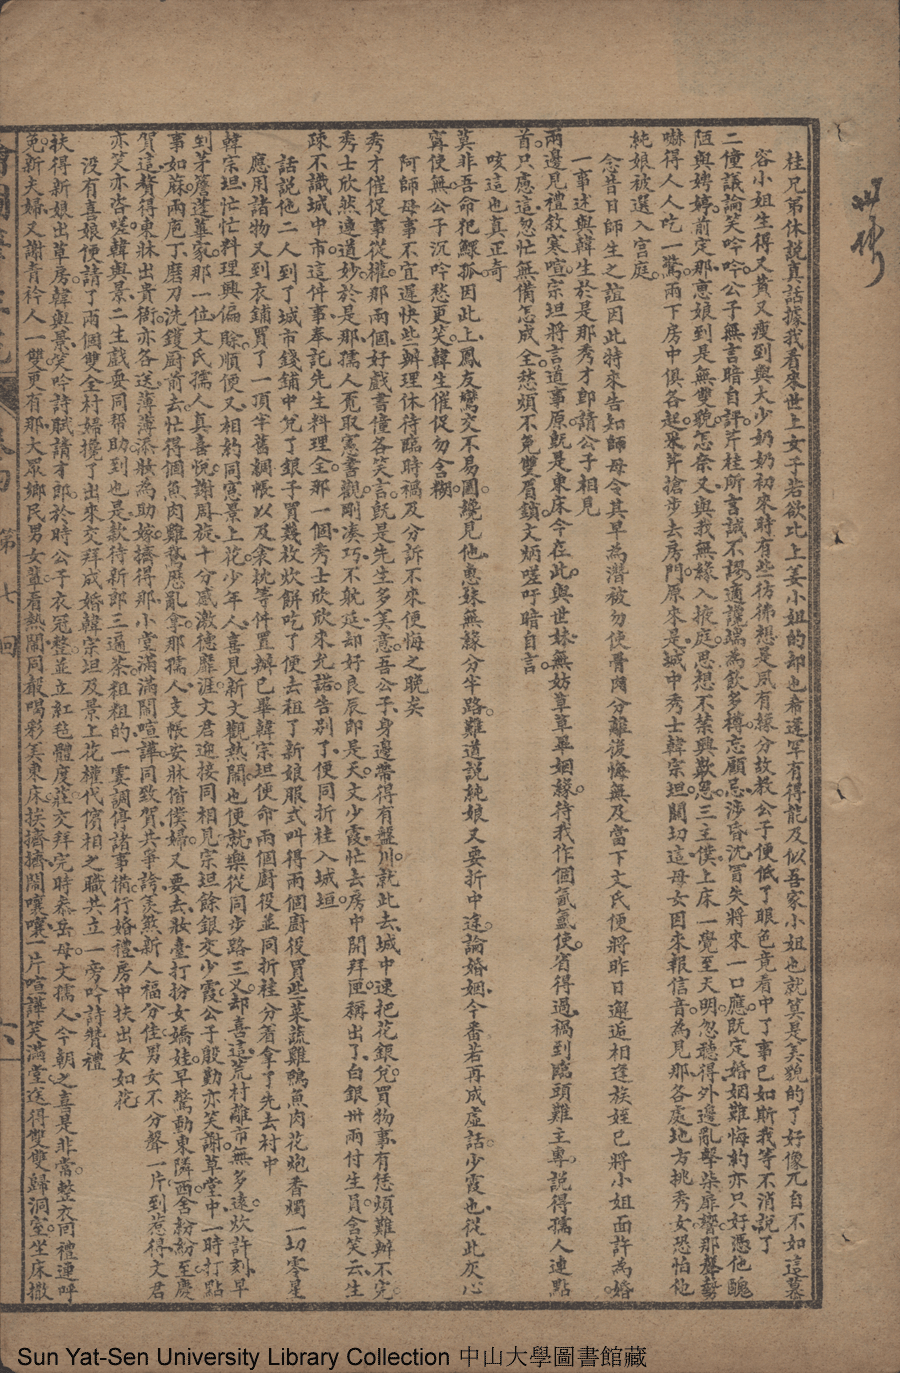 桂兄弟休說真話據我看來世上女子若欲比上姜小姐的却也希逢罕有得能及似吾家小姐也就算是美貌的了好像兀自不如這慕
容小姐生得又黃又瘦到與大少奶奶初來時有些彷彿想是夙有緣分故教公子便低了眼色竟看中了事已如斯我等不消說了
二僮議論笑吟吟公子無言暗自評芹桂所言誠不謬適謹端為飲多樽忘顧忌涉昏沈冒失將來一口應既定婚姻難悔約亦只好憑他醜
陋與娉婷前定那憲娘到是無雙貌怎奈又與我無緣入掖庭思想不禁興歎息三主僕上床一覺至天明忽聽得外邊亂擊柴扉響那聲勢
嚇得人人吃一驚兩下房中俱各起梁芹搶步去房門原來是城中秀士韓宗坦關切這母女因來報信音為見那各處地方挑秀女恐怕他
純娘被選入宮庭
念昔日師生之誼因此特來告知師母令其早為潛被勿使骨肉分離後悔無及當下文氏便將昨日邂逅相逢族姪已將小姐面許為婚
一事述與韓生於是那秀才郎請公子相見
兩邊見禮敘寒喧宗坦將言道事原既是東床今在此與世妹無妨草草畢姻緣待我作個氤氳使省得過禍到臨頭難主專說得孺人連點
首只應這忽忙無備怎成全愁煩不免雙眉鎖文炳嗟吁暗自言
咳這也真正奇
莫非吾命犯鰥孤因此上鳳友鸞交不易圖纔見他惠妹無緣分半路難道說純娘又要折中途論婚姻今番若再成虛話少霞也從此灰心
寗使無公子沉吟愁更笑韓生催促勿含糊
阿師母事不宜遲快些辦理休待臨時禍及分訴不來便悔之晚矣
秀才催促事從權那兩個好戲書僮各笑言既是先生多美意吾公子身邊帶得有盤川就此去城中速把花銀兌買物事有恁煩難辦不完
秀士欣然連道妙於是那孺人覓取憲書觀剛凑巧不躭延却好良辰即是天文少霞忙去房中開拜匣稱出了白銀卅兩付生員含笑云生
疎不識城中市這件事奉託先生料理全那一個秀士欣欣來允諾告別了便同折桂入城垣
話說他二人到了城市錢鋪中兌了銀子買幾枚炊餅吃了便去租了新娘服式叫得兩個廚役買些菜蔬雞鴨魚肉花炮香燭一切零星
應用諸物又到衣鋪買了一頂半舊調帳以及衾枕等件置辦已畢韓宗坦便命兩個廚役並同折桂分着拿了先去村中
韓宗坦忙忙料理興偏賒順便又相約同窓景上花少年人喜見新文觀熱鬧也便就樂從同步路三叉却喜這荒村離市無多遠炊許刻早
到茅簷蓬蓽家那一位文氏孺人真喜悅謝周旋十分感激德靡涯文君迎接同相見宗坦餘銀交少霞公子殷勤亦笑謝草堂中一時打點
事如蔴兩庖丁磨刀洗鑊廚前去忙得個魚肉雞鵞歷亂拿那孺人支帳安牀偕僕婦又要去妝臺打扮女嬌娃早驚動東隣西舍紛紛至慶
賀這贅得東牀出貴衙亦各送薄薄添妝為助嫁擠得那小堂滿滿鬧喧譁同致賀共爭誇羨煞新人福分佳男女不分聲一片到惹得文君
亦笑亦咨嗟韓與景二生戲耍同帮助到也是款待新郎三遍茶粗粗的一雲調停諸事備行婚禮房中扶出女如花
沒有喜娘便請了兩個雙全村婦攙了出來交拜成婚韓宗坦及景上花權代儐相之職共立一旁吟詩贊禮
扶得新娘出草房韓與景笑吟詩賦請才郎於時公子衣冠整並立紅毡體度莊交拜完時參岳母文孺人今朝之喜是非常整衣囘禮連呼
免新夫婦又謝青衿人一雙更有那大眾鄉民男女藍看熱鬧同聲喝彩美東床挨擠擠鬧嚷嚷一片喧譁笑滿堂送得雙雙歸洞室坐床撒
第七回
六
Sun Yat-Sen University Library Collection 中山大學圖書館藏